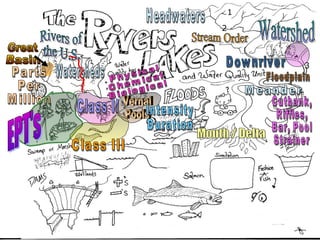 The
Rivers
Lakes
and Water Quality Unit
Headwaters
1
2
Stream Order
Watershed
Rivers of
the U.S.
Great
Basin
Parts
Per
Million
Watersheds
Water
Physical
Chemical
Biological
Downriver
Floodplain
Meander
Class II
Vernal
Pool
FLOODS
Intensity
Duration
Cutbank,
Riffles,
Bar, Pool
Strainer
EPT's
Class III
Mouth / Delta
Swamp or Marsh
Wetlands
DAMS
+'s
-'s
Salmon
Simulation
Fish